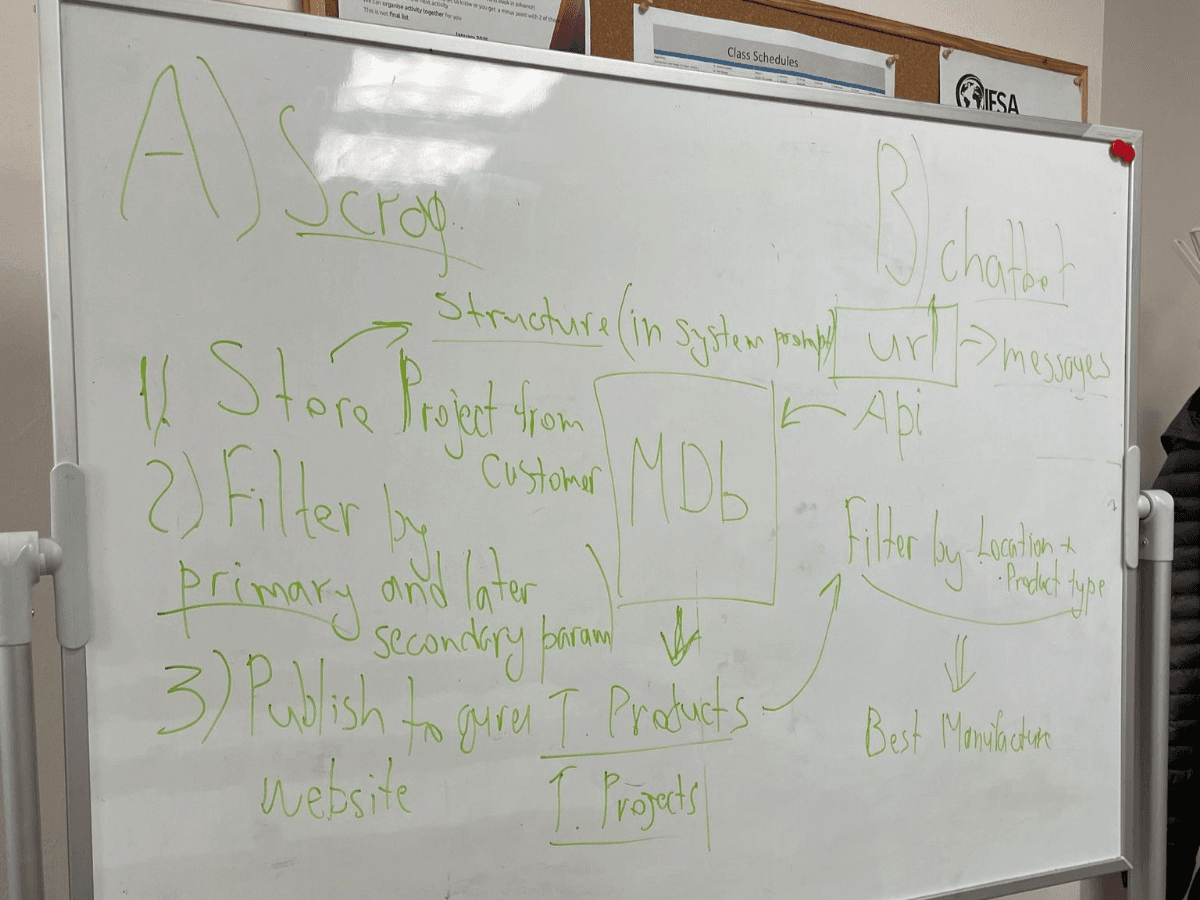 can organise activity together for you
This is not final list
Class Schedules
IESA
A) Scrap
B) chatbot
Structure (in system prompt)
url => messages
1) Store Project from
customer
MDb
Api
2) Filter by
primary and later
secondary param
Filter by Location +
Product type
3) Publish to
website
T. Products
T. Projects
Best Manufacture